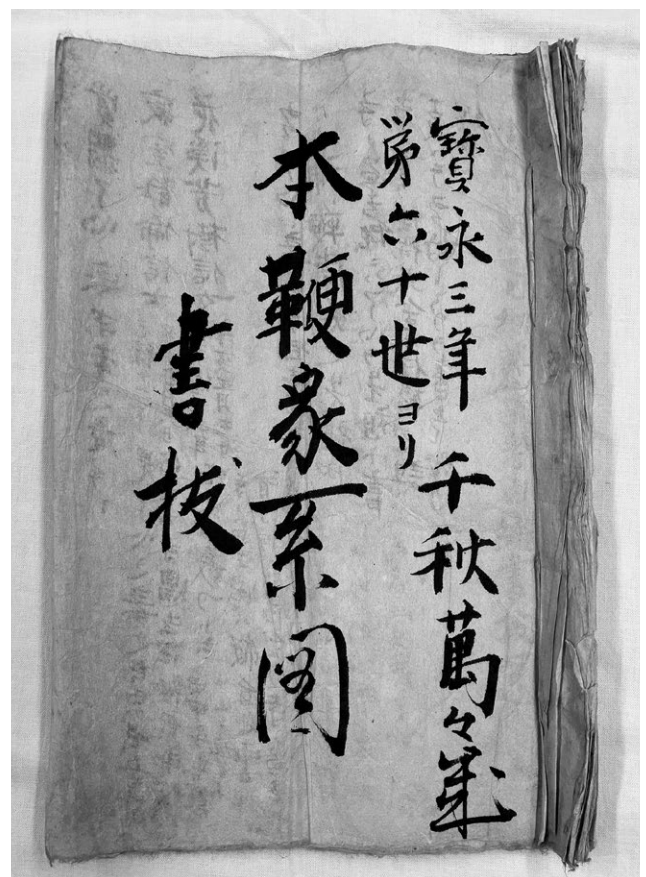 寳永三年 千秋萬々歳
第六十世ヨリ
本鞭家系図
書抜